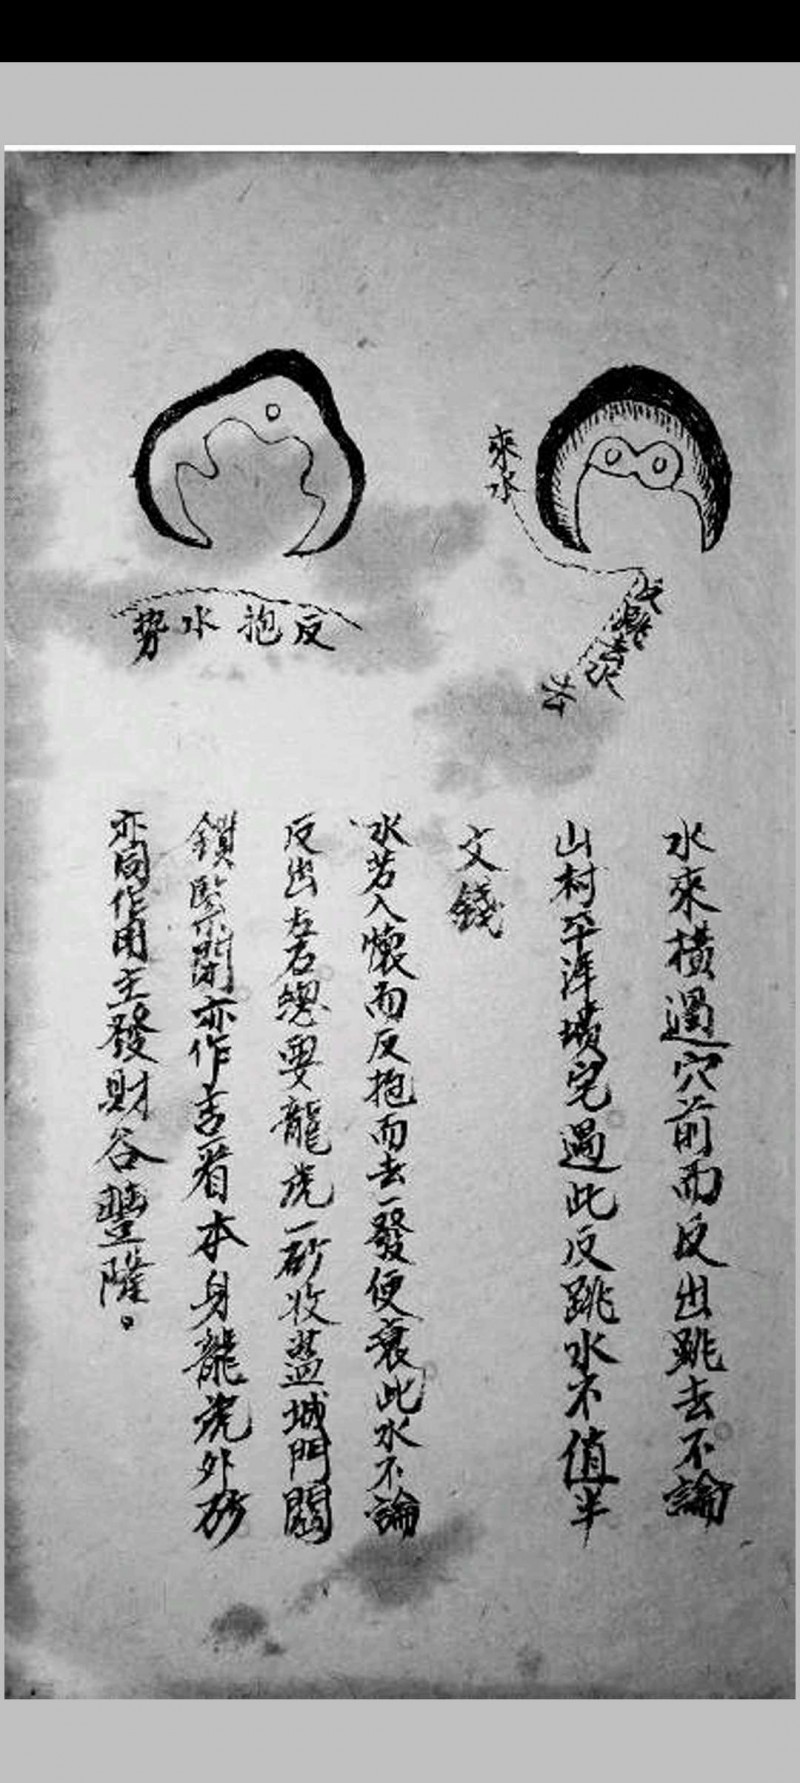 來水
反跳去水
勢水抱反
水來橫過穴前而反出跳去不論
山村平洋墳宅遇此反跳水不值半
文錢
水若入懷而反抱而去一發便衰此水不論
反出左右總要龍虎一砂收蓋城門關
鎖緊閉亦作吉看本身龍虎外砂
亦同作用主發財谷豐隆。